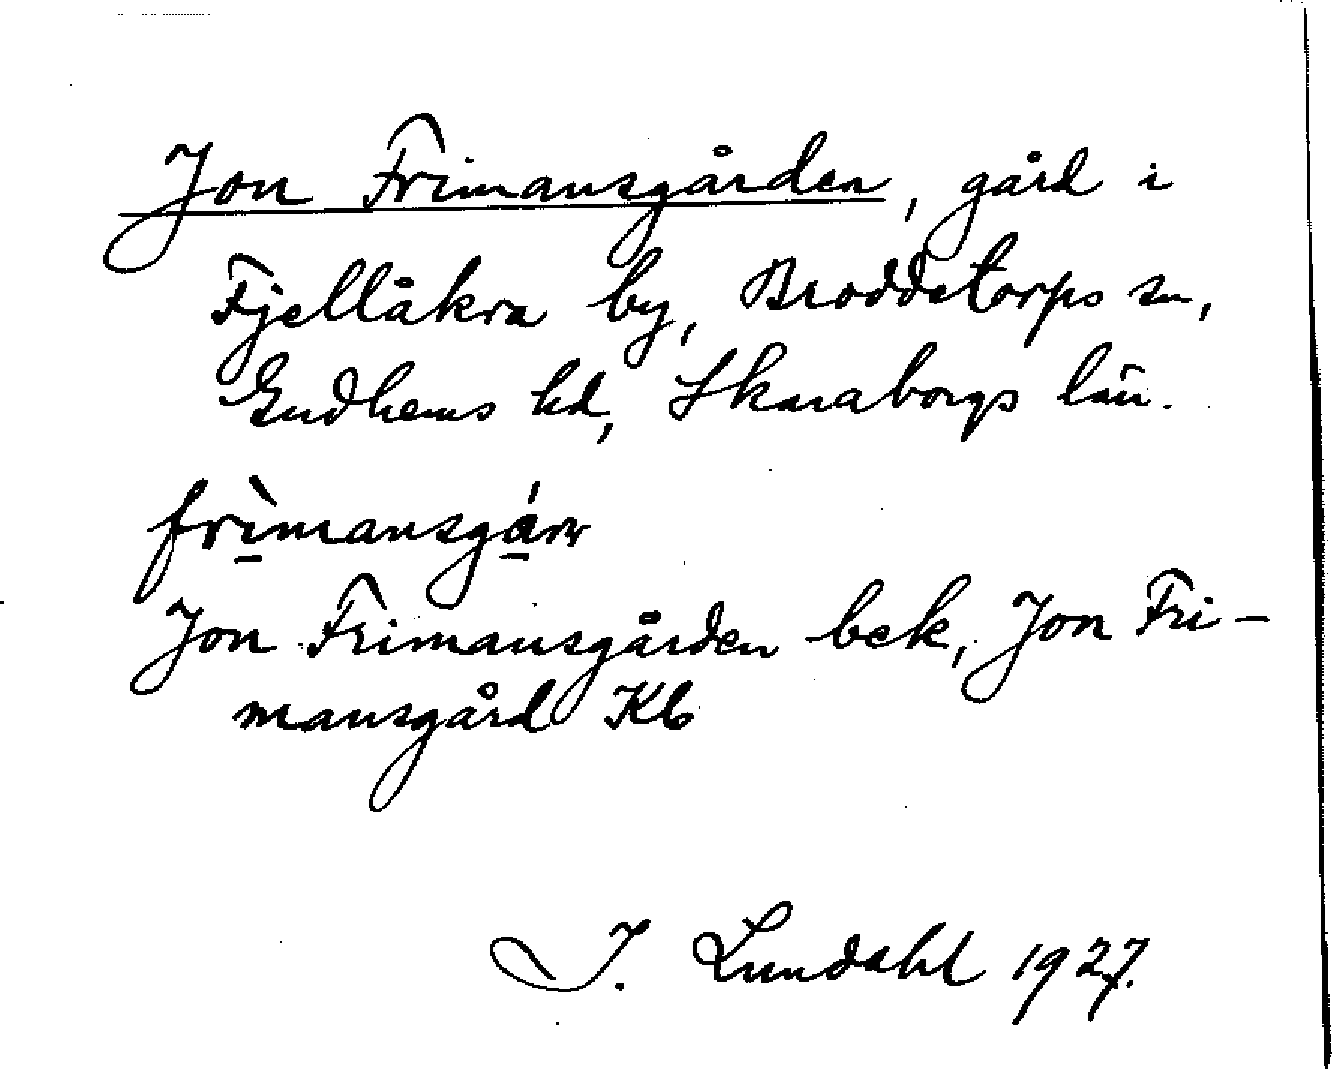 Jon Frimansgården, gård i
Fjellåkra by, Broddetorps sn,
Gudhems hd, Skaraborgs län.
frìmansgárn
Jon Frimansgården bek, Jon Fri-
mansgård Kb
I. Lundahl 1927.